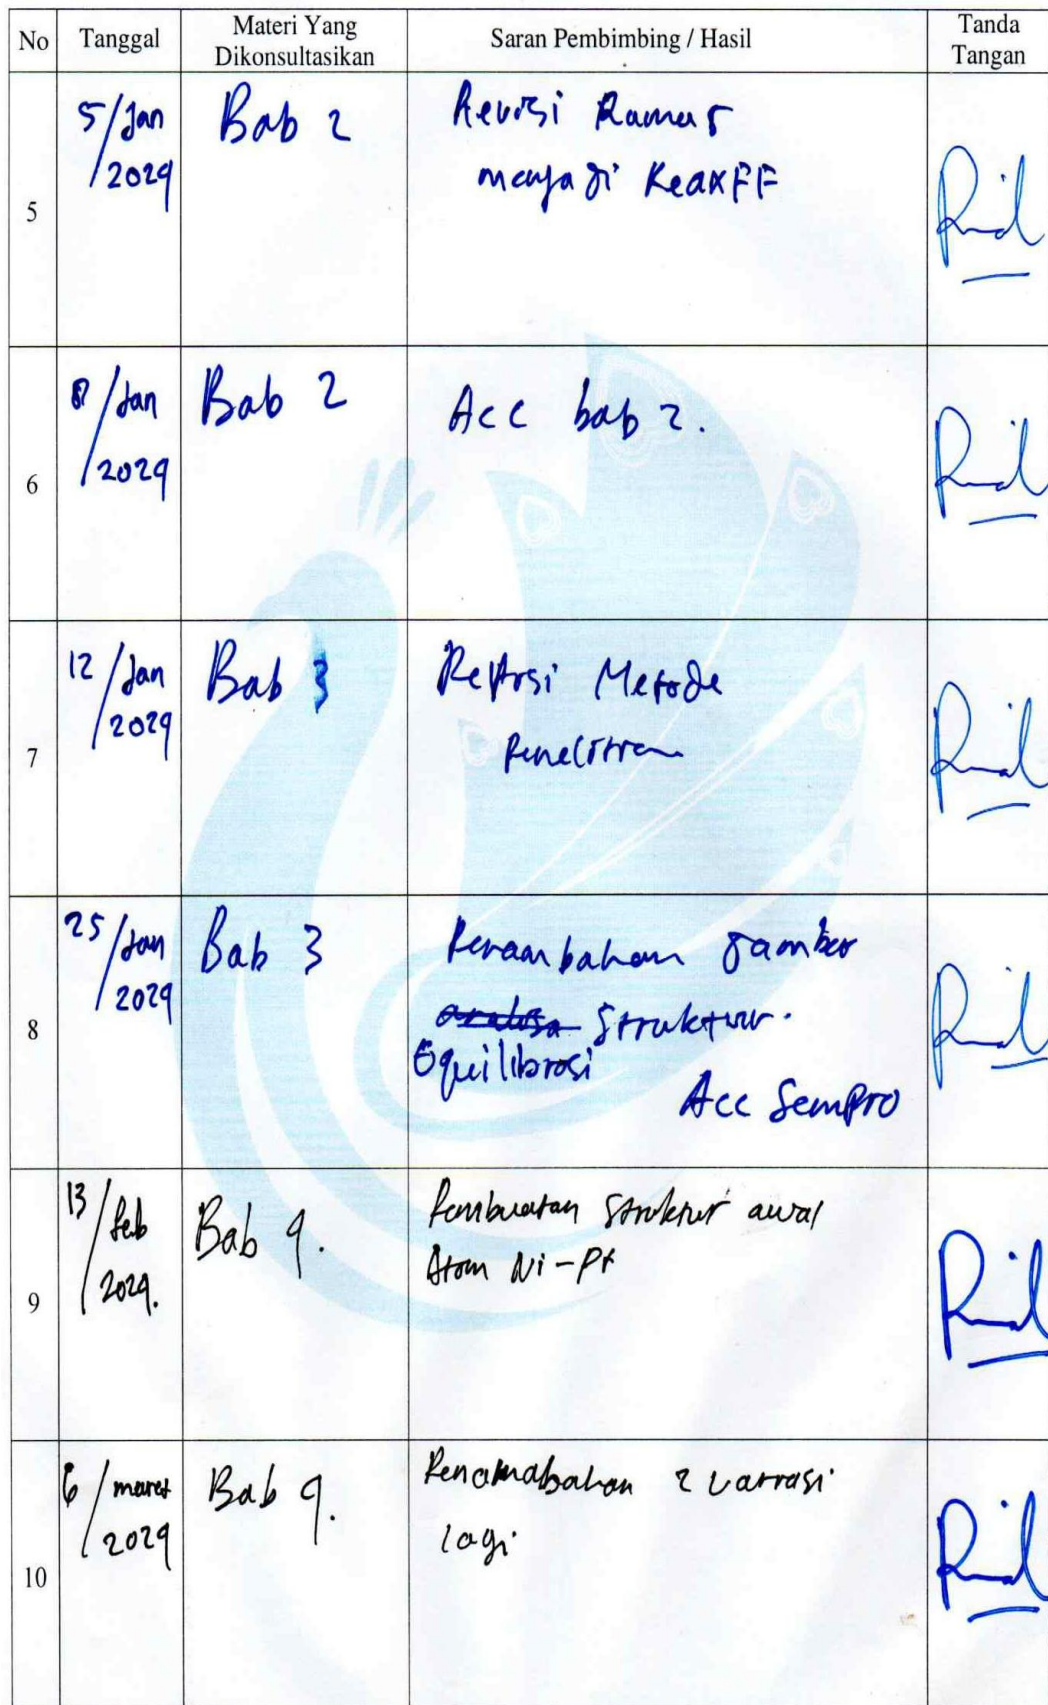 No Tanggal Materi Yang Dikonsultasikan Saran Pembimbing / Hasil Tanda Tangan
5 5/Jan/2024 Bab 2 Revisi Rumus
menjadi ReaxFF
6 8/Jan/2024 Bab 2 Acc bab 2.
7 12/Jan/2024 Bab 3 Revisi Metode
Penelitian
8 25/Jan/2024 Bab 3 Penambahan gambar
Struktur.
Equilibrasi
Acc Sempro
9 13/Feb/2024. Bab 4. Pembuatan Struktur awal
Atom Ni-Pt
10 6/maret/2024 Bab 4. Penambahan 2 variasi
lagi